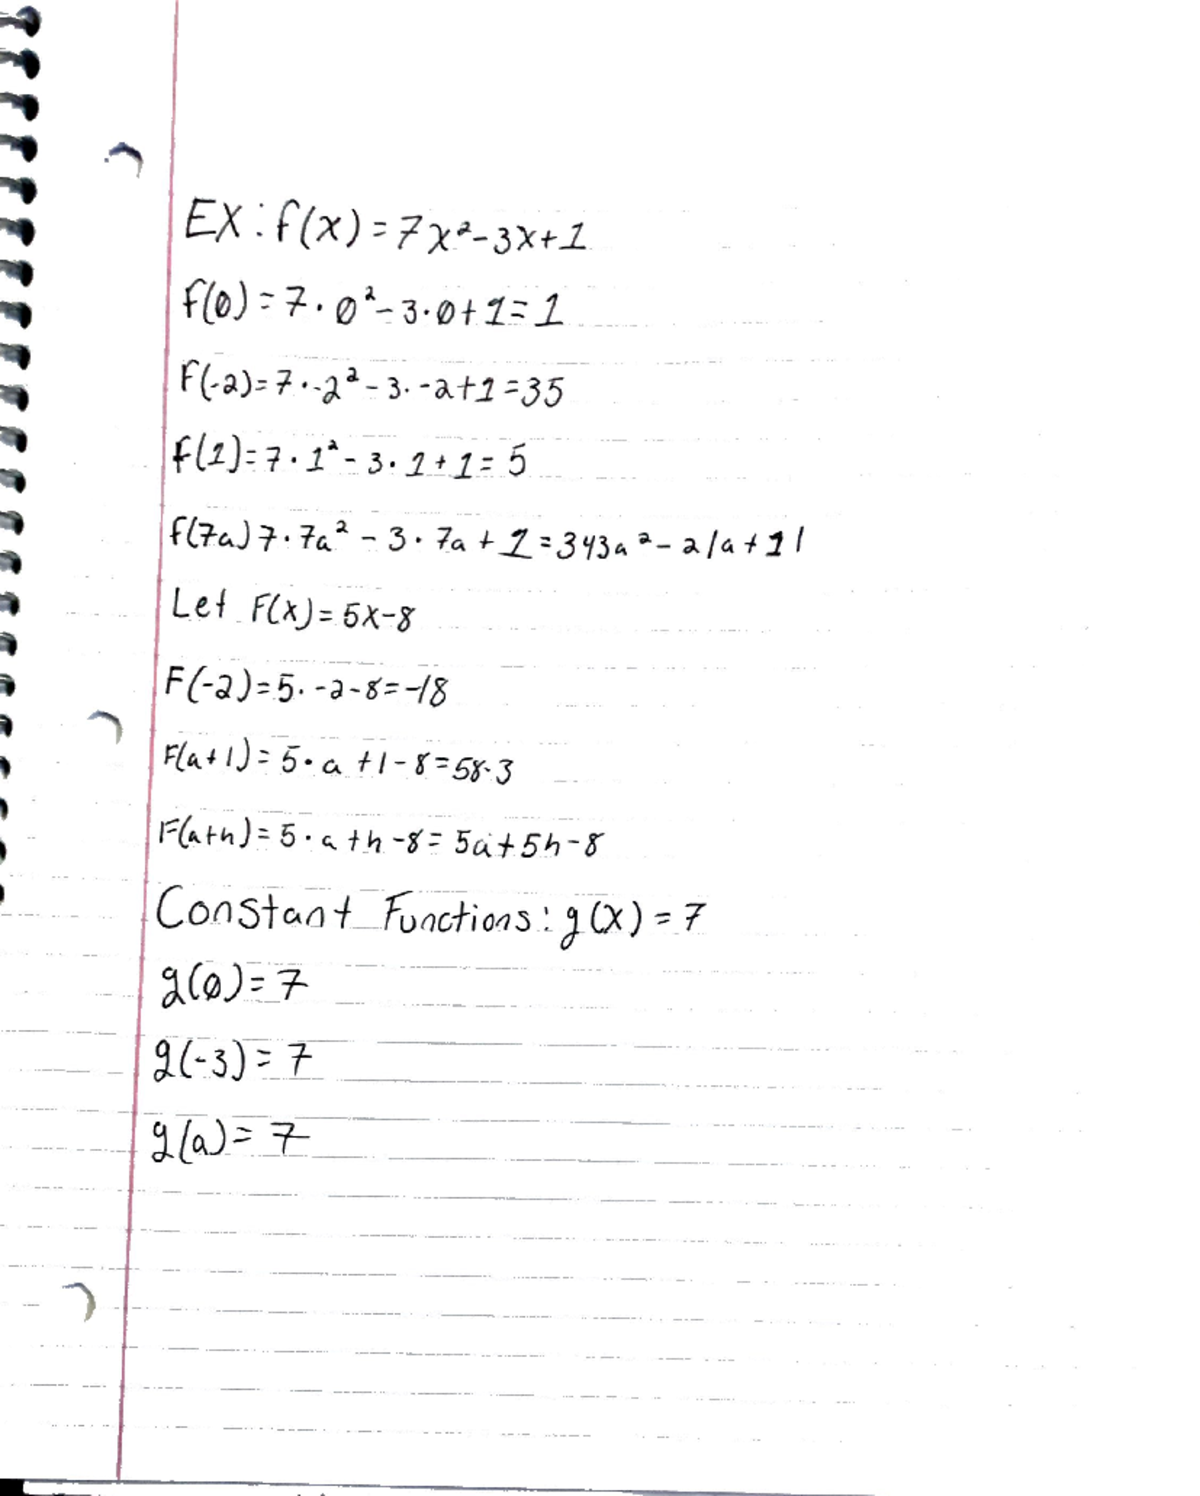 EX: f(x) = 7x² - 3x + 1
f(0) = 7 · 0² - 3 · 0 + 1 = 1
F(-2) = 7 · -2² - 3 · -2 + 1 = 35
f(1) = 7 · 1² - 3 · 1 + 1 = 5
f(7a) 7 · 7a² - 3 · 7a + 1 = 343a² - 21a + 1 |
Let F(x) = 5x - 8
F(-2) = 5 · -2 - 8 = -18
F(a+1) = 5 · a + 1 - 8 = 58-3
F(a+h) = 5 · a + h - 8 = 5a + 5h - 8
Constant Functions: g(x) = 7
g(0) = 7
g(-3) = 7
g(a) = 7